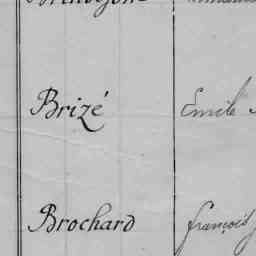 Brizé Emile
Brochard françois